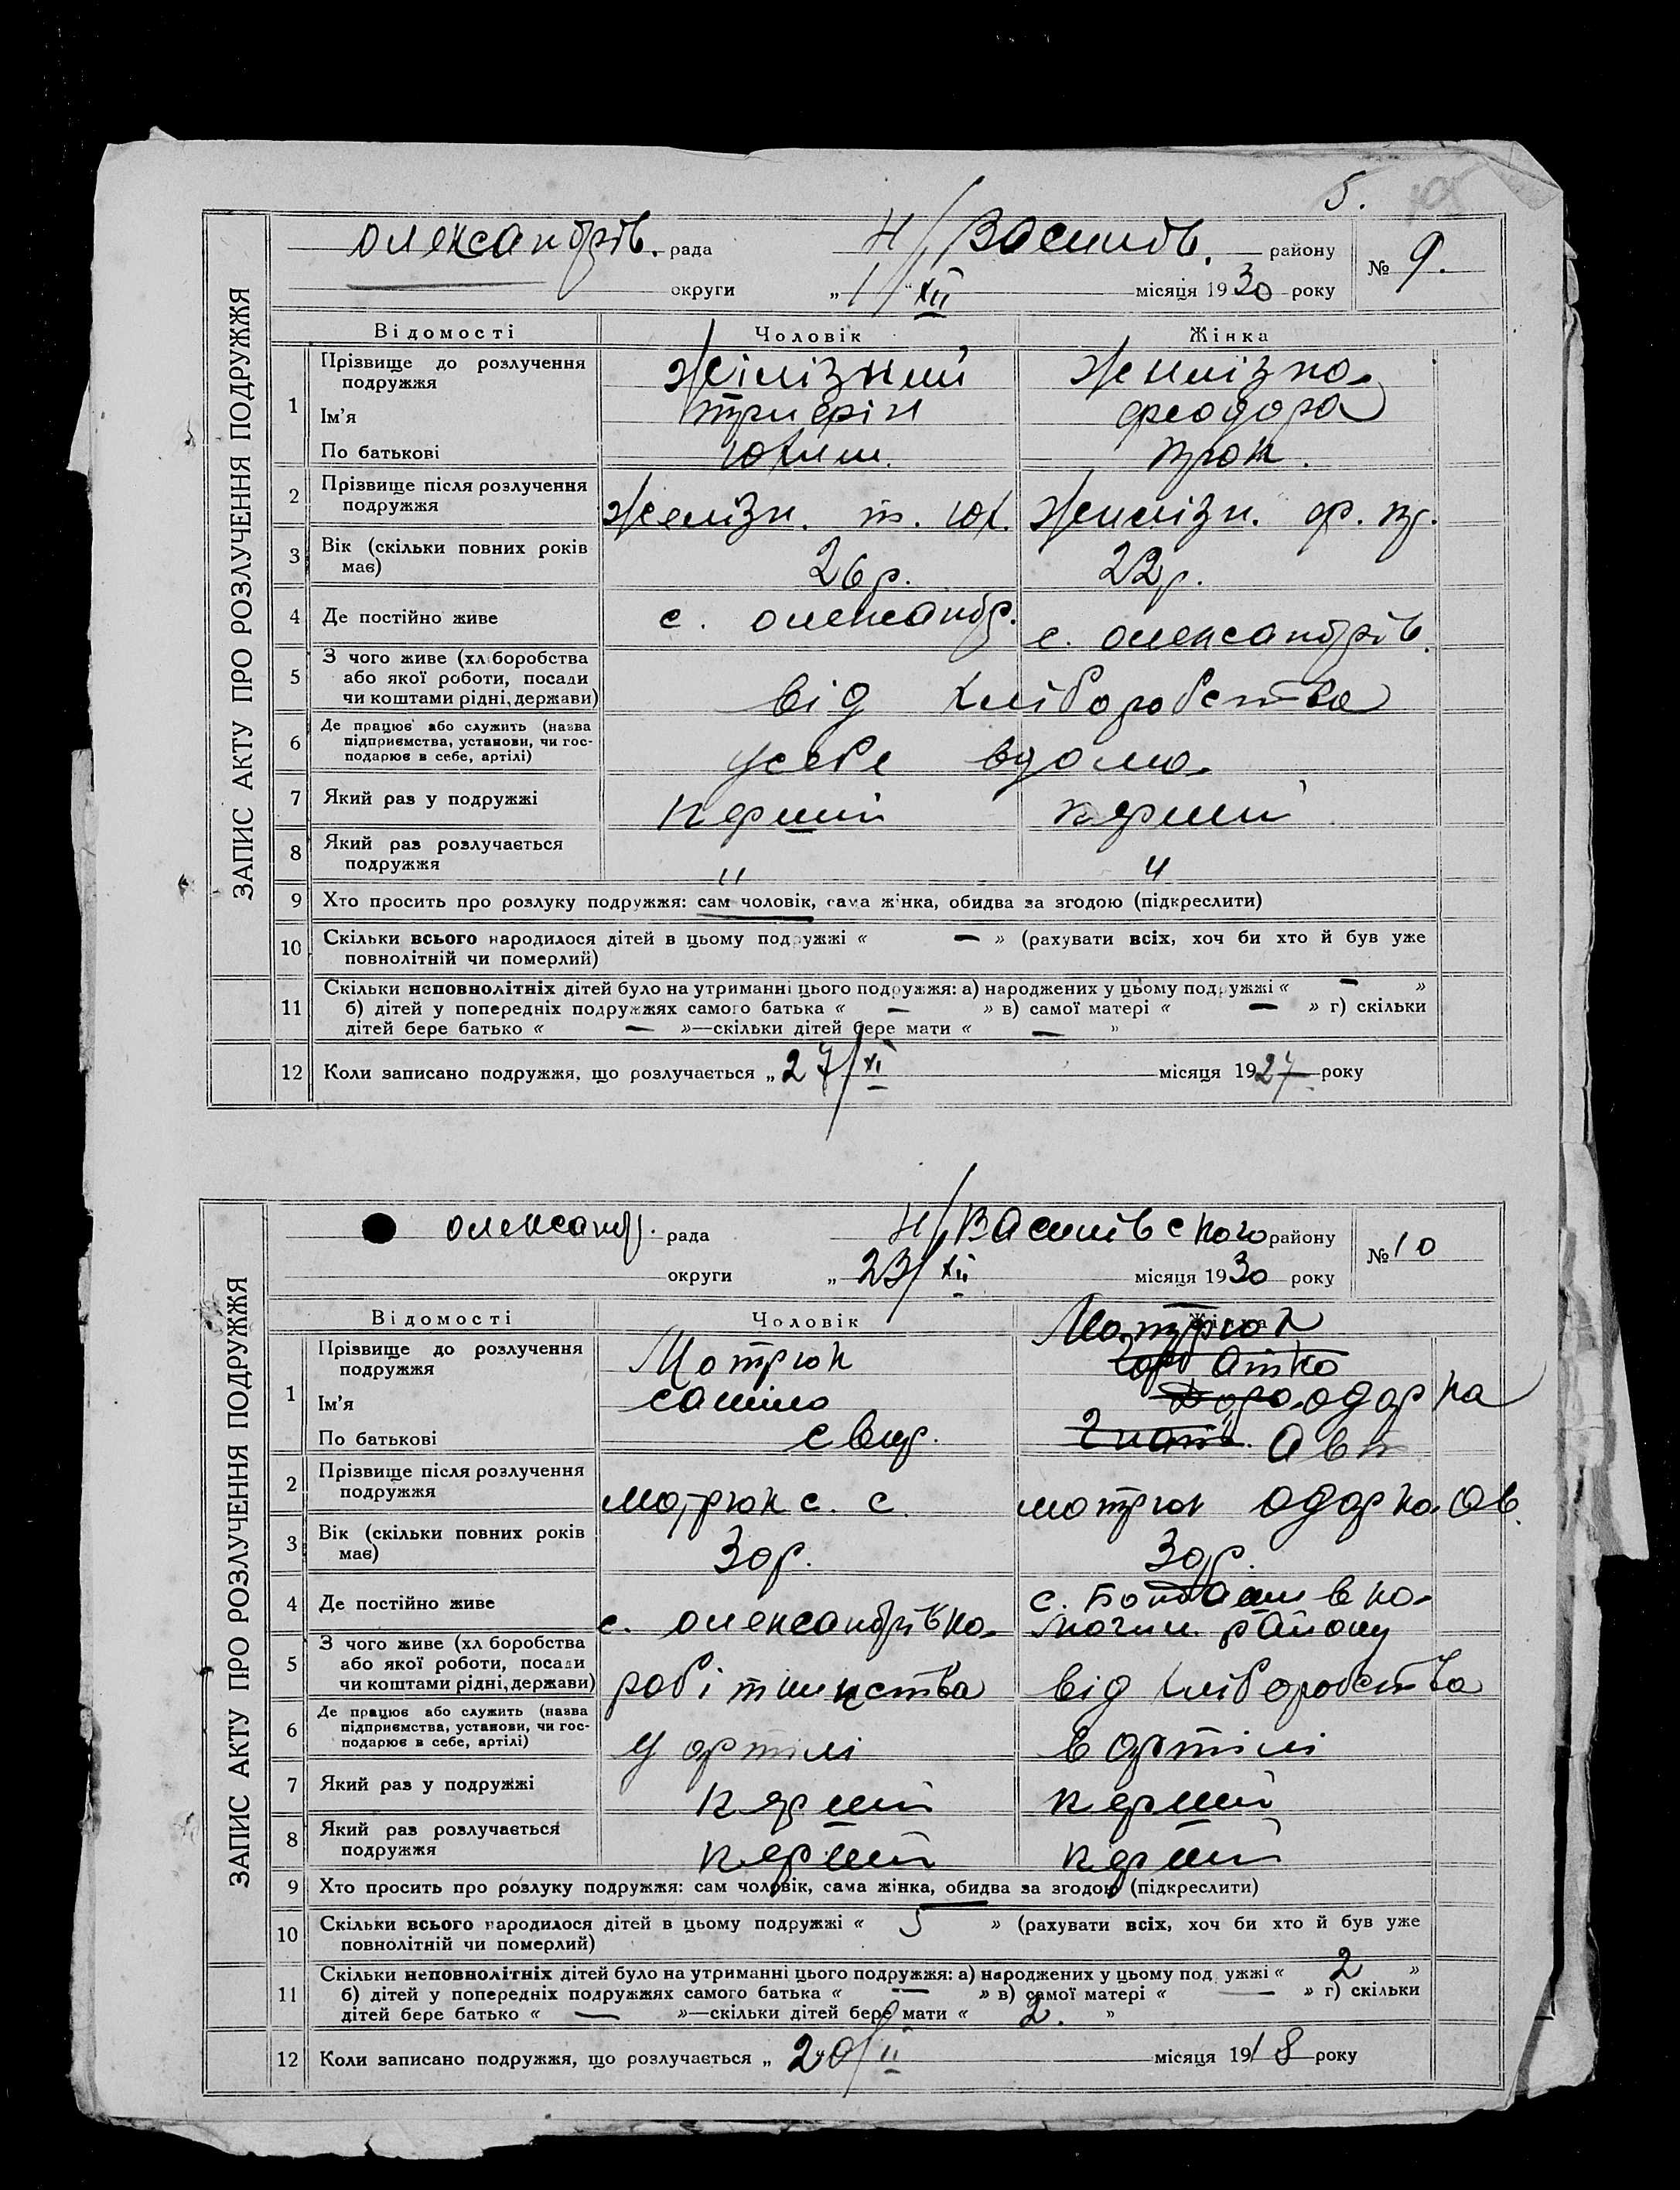 5.
ЗАПИС АКТУ ПРО РОЗЛУЧЕННЯ ПОДРУЖЖЯ
олександрів. рада Н/Василів. району № 9.
округи „1/XII місяця 1930 року
Відомості Чоловік Жінка
1 Прізвище до розлучення подружжя Жілізний Желізна
Ім'я трифін феодора
По батькові юхим. прок.
2 Прізвище після розлучення подружжя Желізн. т. юх. Желізн. ф. пр.
3 Вік (скільки повних років має) 26р. 22р.
4 Де постійно живе с. олександр. с. олександрів.
5 З чого живе (хліборобства або якої роботи, посади чи коштами рідні, держави) від хліборобства
6 Де працює або служить (назва підприємства, установи, чи господарює в себе, артілі) усебе вдома
7 Який раз у подружжі перший перший
8 Який раз розлучається подружжя " "
9 Хто просить про розлуку подружжя: сам чоловік, сама жінка, обидва за згодою (підкреслити)
10 Скільки всього народилося дітей в цьому подружжі « — » (рахувати всіх, хоч би хто й був уже
повнолітній чи померлий)
11 Скільки неповнолітніх дітей було на утриманні цього подружжя: а) народжених у цьому подружжі « — »
б) дітей у попередніх подружжях самого батька « — » в) самої матері « — » г) скільки
дітей бере батько « — »—скільки дітей бере мати « — »
12 Коли записано подружжя, що розлучається „27/XI місяця 1927 року
ЗАПИС АКТУ ПРО РОЗЛУЧЕННЯ ПОДРУЖЖЯ
олександр. рада Н/Василівського району № 10
округи „23/XII місяця 1930 року
Відомості Чоловік Жінка
1 Прізвище до розлучення подружжя Мотрюк Мотрюк
Ім'я одарка
По батькові Авт
2 Прізвище після розлучення подружжя мотрюк с. с. мотрюк одарка Ав.
3 Вік (скільки повних років має) 30р. 30р.
4 Де постійно живе с. олександрівка району
5 З чого живе (хліборобства або якої роботи, посади чи коштами рідні, держави) робітництва від хліборобства
6 Де працює або служить (назва підприємства, установи, чи господарює в себе, артілі) у артілі в артілі
7 Який раз у подружжі перший перший
8 Який раз розлучається подружжя перший перший
9 Хто просить про розлуку подружжя: сам чоловік, сама жінка, обидва за згодою (підкреслити)
10 Скільки всього народилося дітей в цьому подружжі « 5 » (рахувати всіх, хоч би хто й був уже
повнолітній чи померлий)
11 Скільки неповнолітніх дітей було на утриманні цього подружжя: а) народжених у цьому подружжі « 2 »
б) дітей у попередніх подружжях самого батька « — » в) самої матері « — » г) скільки
дітей бере батько « — »—скільки дітей бере мати « 2. »
12 Коли записано подружжя, що розлучається „20/II місяця 1918 року